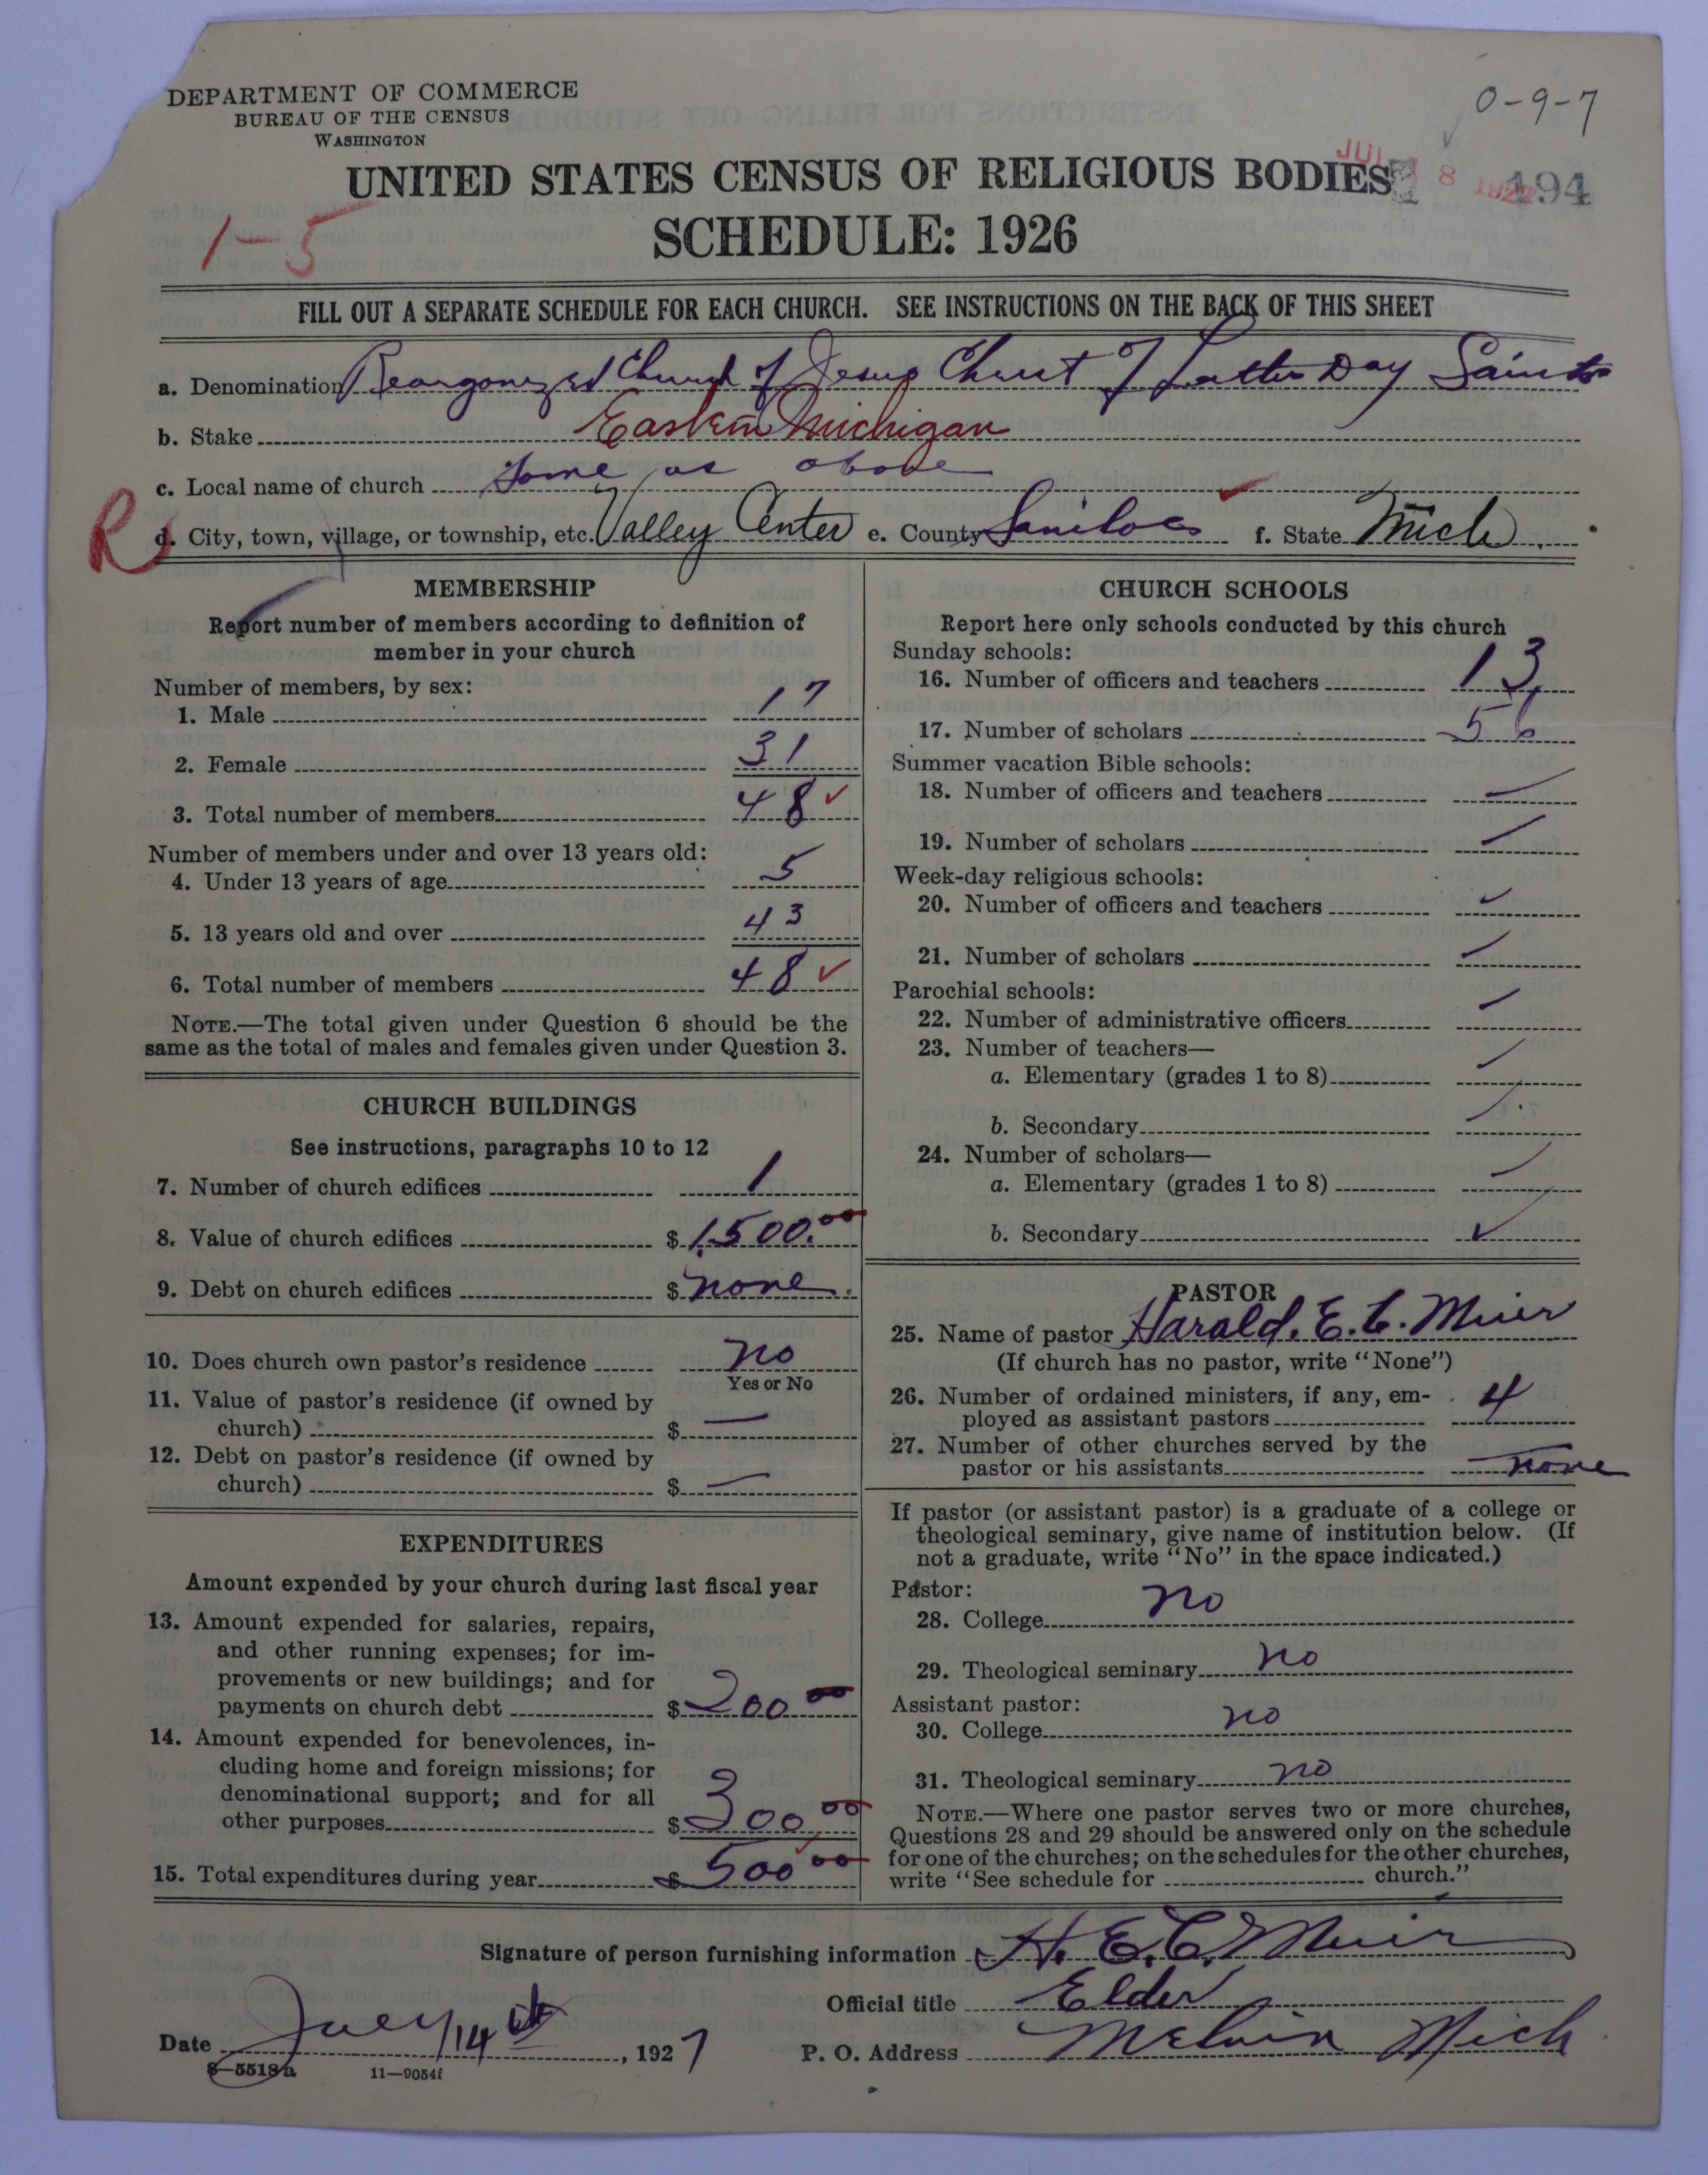 DEPARTMENT OF COMMERCE
BUREAU OF THE CENSUS
WASHINGTON
0-9-7
UNITED STATES CENSUS OF RELIGIOUS BODIES
194
SCHEDULE: 1926
1-5
FILL OUT A SEPARATE SCHEDULE FOR EACH CHURCH. SEE INSTRUCTIONS ON THE BACK OF THIS SHEET
a. Denomination Reorgonized Church of Jesus Christ of Latter Day Saints
b. Stake Eastern Michigan
c. Local name of church Same as above
R d. City, town, village, or township, etc. Valley Center e. County Saniloc f. State Mich.
MEMBERSHIP
Report number of members according to definition of
member in your church
Number of members, by sex:
1. Male 17
2. Female 31
3. Total number of members 48 ✓
Number of members under and over 13 years old:
4. Under 13 years of age 5
5. 13 years old and over 43
6. Total number of members 48 ✓
NOTE.—The total given under Question 6 should be the
same as the total of males and females given under Question 3.
CHURCH BUILDINGS
See instructions, paragraphs 10 to 12
7. Number of church edifices 1
8. Value of church edifices $ 1500.00
9. Debt on church edifices $ none.
10. Does church own pastor's residence no
Yes or No
11. Value of pastor's residence (if owned by
church) $ —
12. Debt on pastor's residence (if owned by
church) $ —
EXPENDITURES
Amount expended by your church during last fiscal year
13. Amount expended for salaries, repairs,
and other running expenses; for im-
provements or new buildings; and for
payments on church debt $ 200 00
14. Amount expended for benevolences, in-
cluding home and foreign missions; for
denominational support; and for all
other purposes $ 300 00
15. Total expenditures during year $ 500 00
CHURCH SCHOOLS
Report here only schools conducted by this church
Sunday schools:
16. Number of officers and teachers 13
17. Number of scholars 56
Summer vacation Bible schools:
18. Number of officers and teachers —
19. Number of scholars —
Week-day religious schools:
20. Number of officers and teachers —
21. Number of scholars —
Parochial schools:
22. Number of administrative officers —
23. Number of teachers—
a. Elementary (grades 1 to 8) —
b. Secondary —
24. Number of scholars—
a. Elementary (grades 1 to 8) —
b. Secondary ✓
PASTOR
25. Name of pastor Harald. E. C. Muir
(If church has no pastor, write "None")
26. Number of ordained ministers, if any, em-
ployed as assistant pastors 4
27. Number of other churches served by the
pastor or his assistants none
If pastor (or assistant pastor) is a graduate of a college or
theological seminary, give name of institution below. (If
not a graduate, write "No" in the space indicated.)
Pastor:
28. College no
29. Theological seminary no
Assistant pastor:
30. College no
31. Theological seminary no
NOTE.—Where one pastor serves two or more churches,
Questions 28 and 29 should be answered only on the schedule
for one of the churches; on the schedules for the other churches,
write "See schedule for church."
Signature of person furnishing information H. E. C. Muir
Official title Elder
Date July 14th, 1927
P. O. Address Melvin Mich
8—5518a 11—9054f